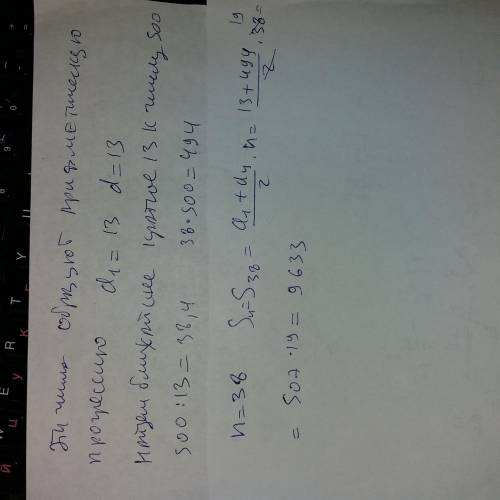 Эти числа образуют арифметическую
прогрессию a1 = 13 d = 13
Найдем ближайшее кратное 13 к числу 500
500 : 13 = 38,4 38 · 500 = 494
n = 38 Sn = S38 = a1 + an / 2 · n = 13 + 494 / 2 · 38 = 19
= 507 · 19 = 9633